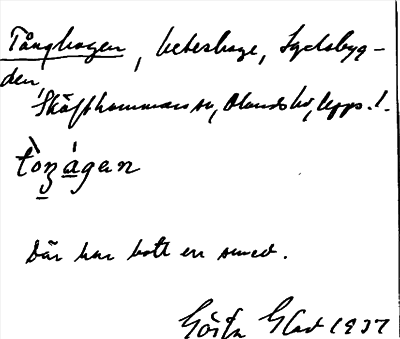 Tånghagen, beteshage, Sydsbyg-
den,
Skäfthammars sn, Olands hd, Upps. l.
tòn̠ágan
Där har bott en smed.
Gösta Glad 1937